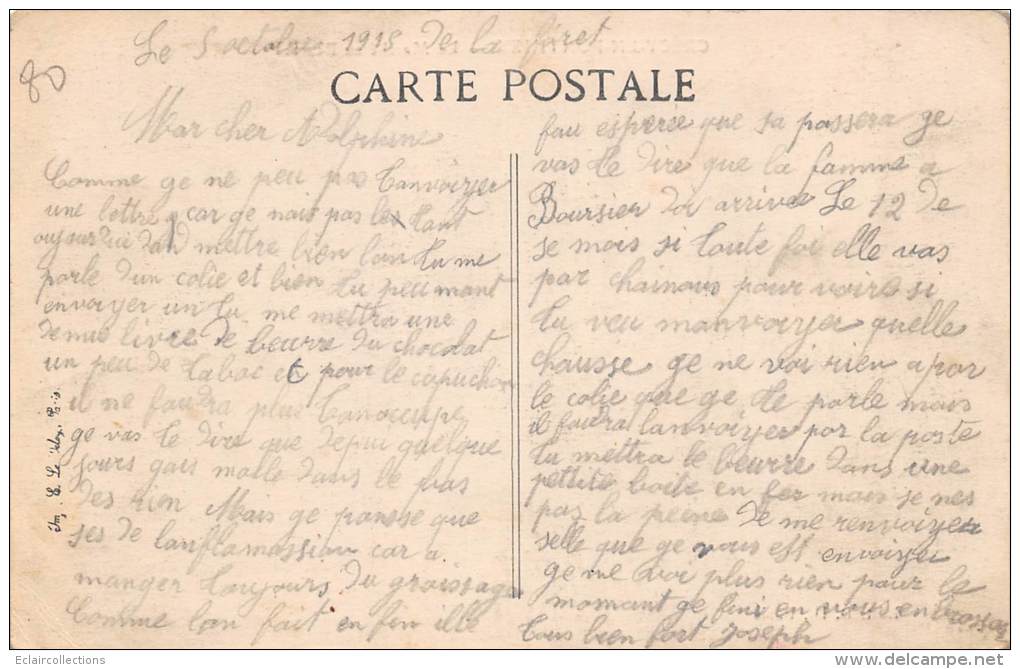 Le 5 octobre 1915 de la foret
80
CARTE POSTALE
Mar cher Adelphine
Comme ge ne peu pas t'anvoiyer
une lettre car ge nais pas le tant
oujourdui dan mettre bien loin tu me
parle d'un colie et bien tu peu mant
envoiyer un tu me mettra une
demie livre de beurre du chocolat
un peu de tabac et pour le capuchon
il ne faudra plus t'anoccupe
ge vas te dire que depui quelque
jours gais malle dans le bas
des rien Mais ge pansse que
ses de lanflamassian car a
manger toujours du graissage
Comme lon fait en fin ille
fau esperee que sa passera ge
vas te dire que la famme a
Boursier doi arrive Le 12 de
se mois si toute foi elle vas
par chainous pour voire si
tu veu manvoiyer quelle
chausse ge ne voi rien apar
le colie que ge te parle mais
il faudra lanvoiyer par la poste
tu mettra le beurre dans une
pettite boite en fer mais se nes
pas la peine de me renvoiyer
selle que ge vous est envoiyer
ge ne voi plus rien pour le
momant ge fini en vous enbrassas
tous bien fort Joseph
Eclaircollections
www.delcampe.net